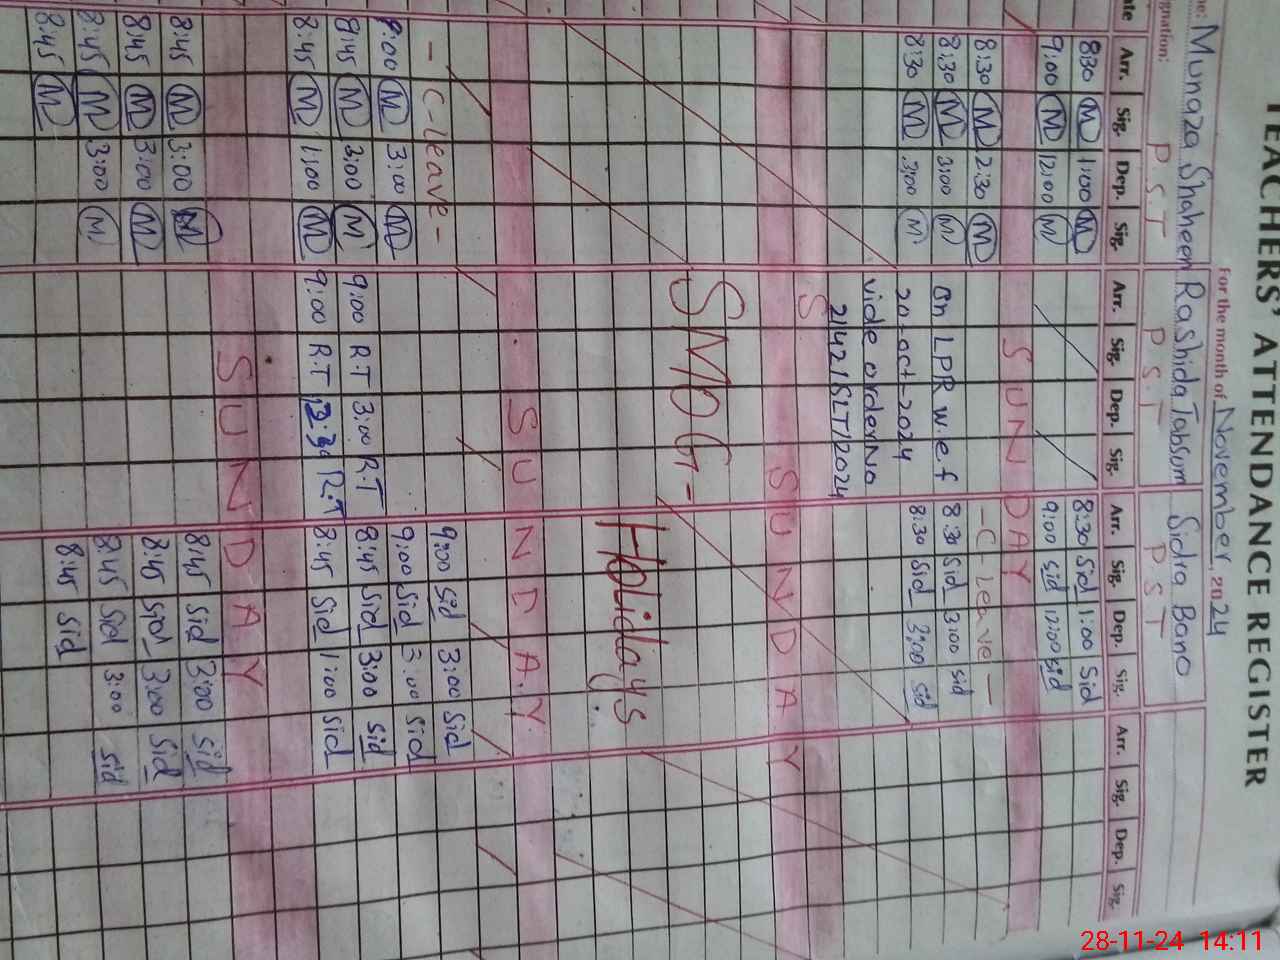 TEACHERS' ATTENDANCE REGISTER
For the month of November, 2024
Munaza Shaheen Rashida Tabsum Sidra Bano
gnation: P S T P S T P S T
Arr. Sig. Dep. Sig. Arr. Sig. Dep. Sig. Arr. Sig. Dep. Sig. Arr. Sig. Dep. Sig.
8:30 M 1:00 M 8:30 Sid 1:00 Sid
9:00 M 12:00 M 9:00 Sid 12:00 Sid
SUNDAY
8:30 M 2:30 M - C - Leave -
8:30 M 3:00 M On LPR w.e.f 8:30 Sid 3:00 Sid
8:30 M 3:00 M 20-oct-2024 8:30 Sid 3:00 Sid
vide order No
2142/SLT/2024
S
SUNDAY
SMOG -
Holidays
SUNDAY
- C - Leave - 9:00 Sid 3:00 Sid
9:00 M 3:00 M 9:00 Sid 3:00 Sid
8:45 M 3:00 M 9:00 R.T 3:00 R.T 8:45 Sid 3:00 Sid
8:45 M 1:00 M 9:00 R.T R.T 8:45 Sid 1:00 Sid
SUNDAY
8:45 M 3:00 M 8:45 Sid 3:00 Sid
8:45 M 3:00 M 8:45 Sid 3:00 Sid
8:45 M 3:00 M 8:45 Sid 3:00 Sid
8:45 M 8:45 Sid
28-11-24 14:11